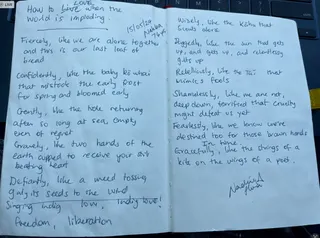 How to love when the
world is imploding.
15/05/25
Fiercely, like we are alone together
and this is our last loaf of
bread
Confidently, like the baby
that mistook the early frost
for spring and bloomed early
Gently, like the
after long at sea, empty
even of regret
Gravely, like two hands of the
earth cupped to receive your
beating heart
Defiantly, like a weed tossing
its seeds to the wind
Singing love, love!
Freedom, liberation
Wisely, like the
alone
Doggedly, like the sun that gets
up, and gets up, and relentlessly
gets up
Rebelliously, like the
fools
Shamelessly, like we are not,
deep down, terrified that cruelty
might defeat us yet
Fearlessly, like we know we're
destined too for those
In time.
Gracefully, like the strings of a
kite on the wings of a poet.